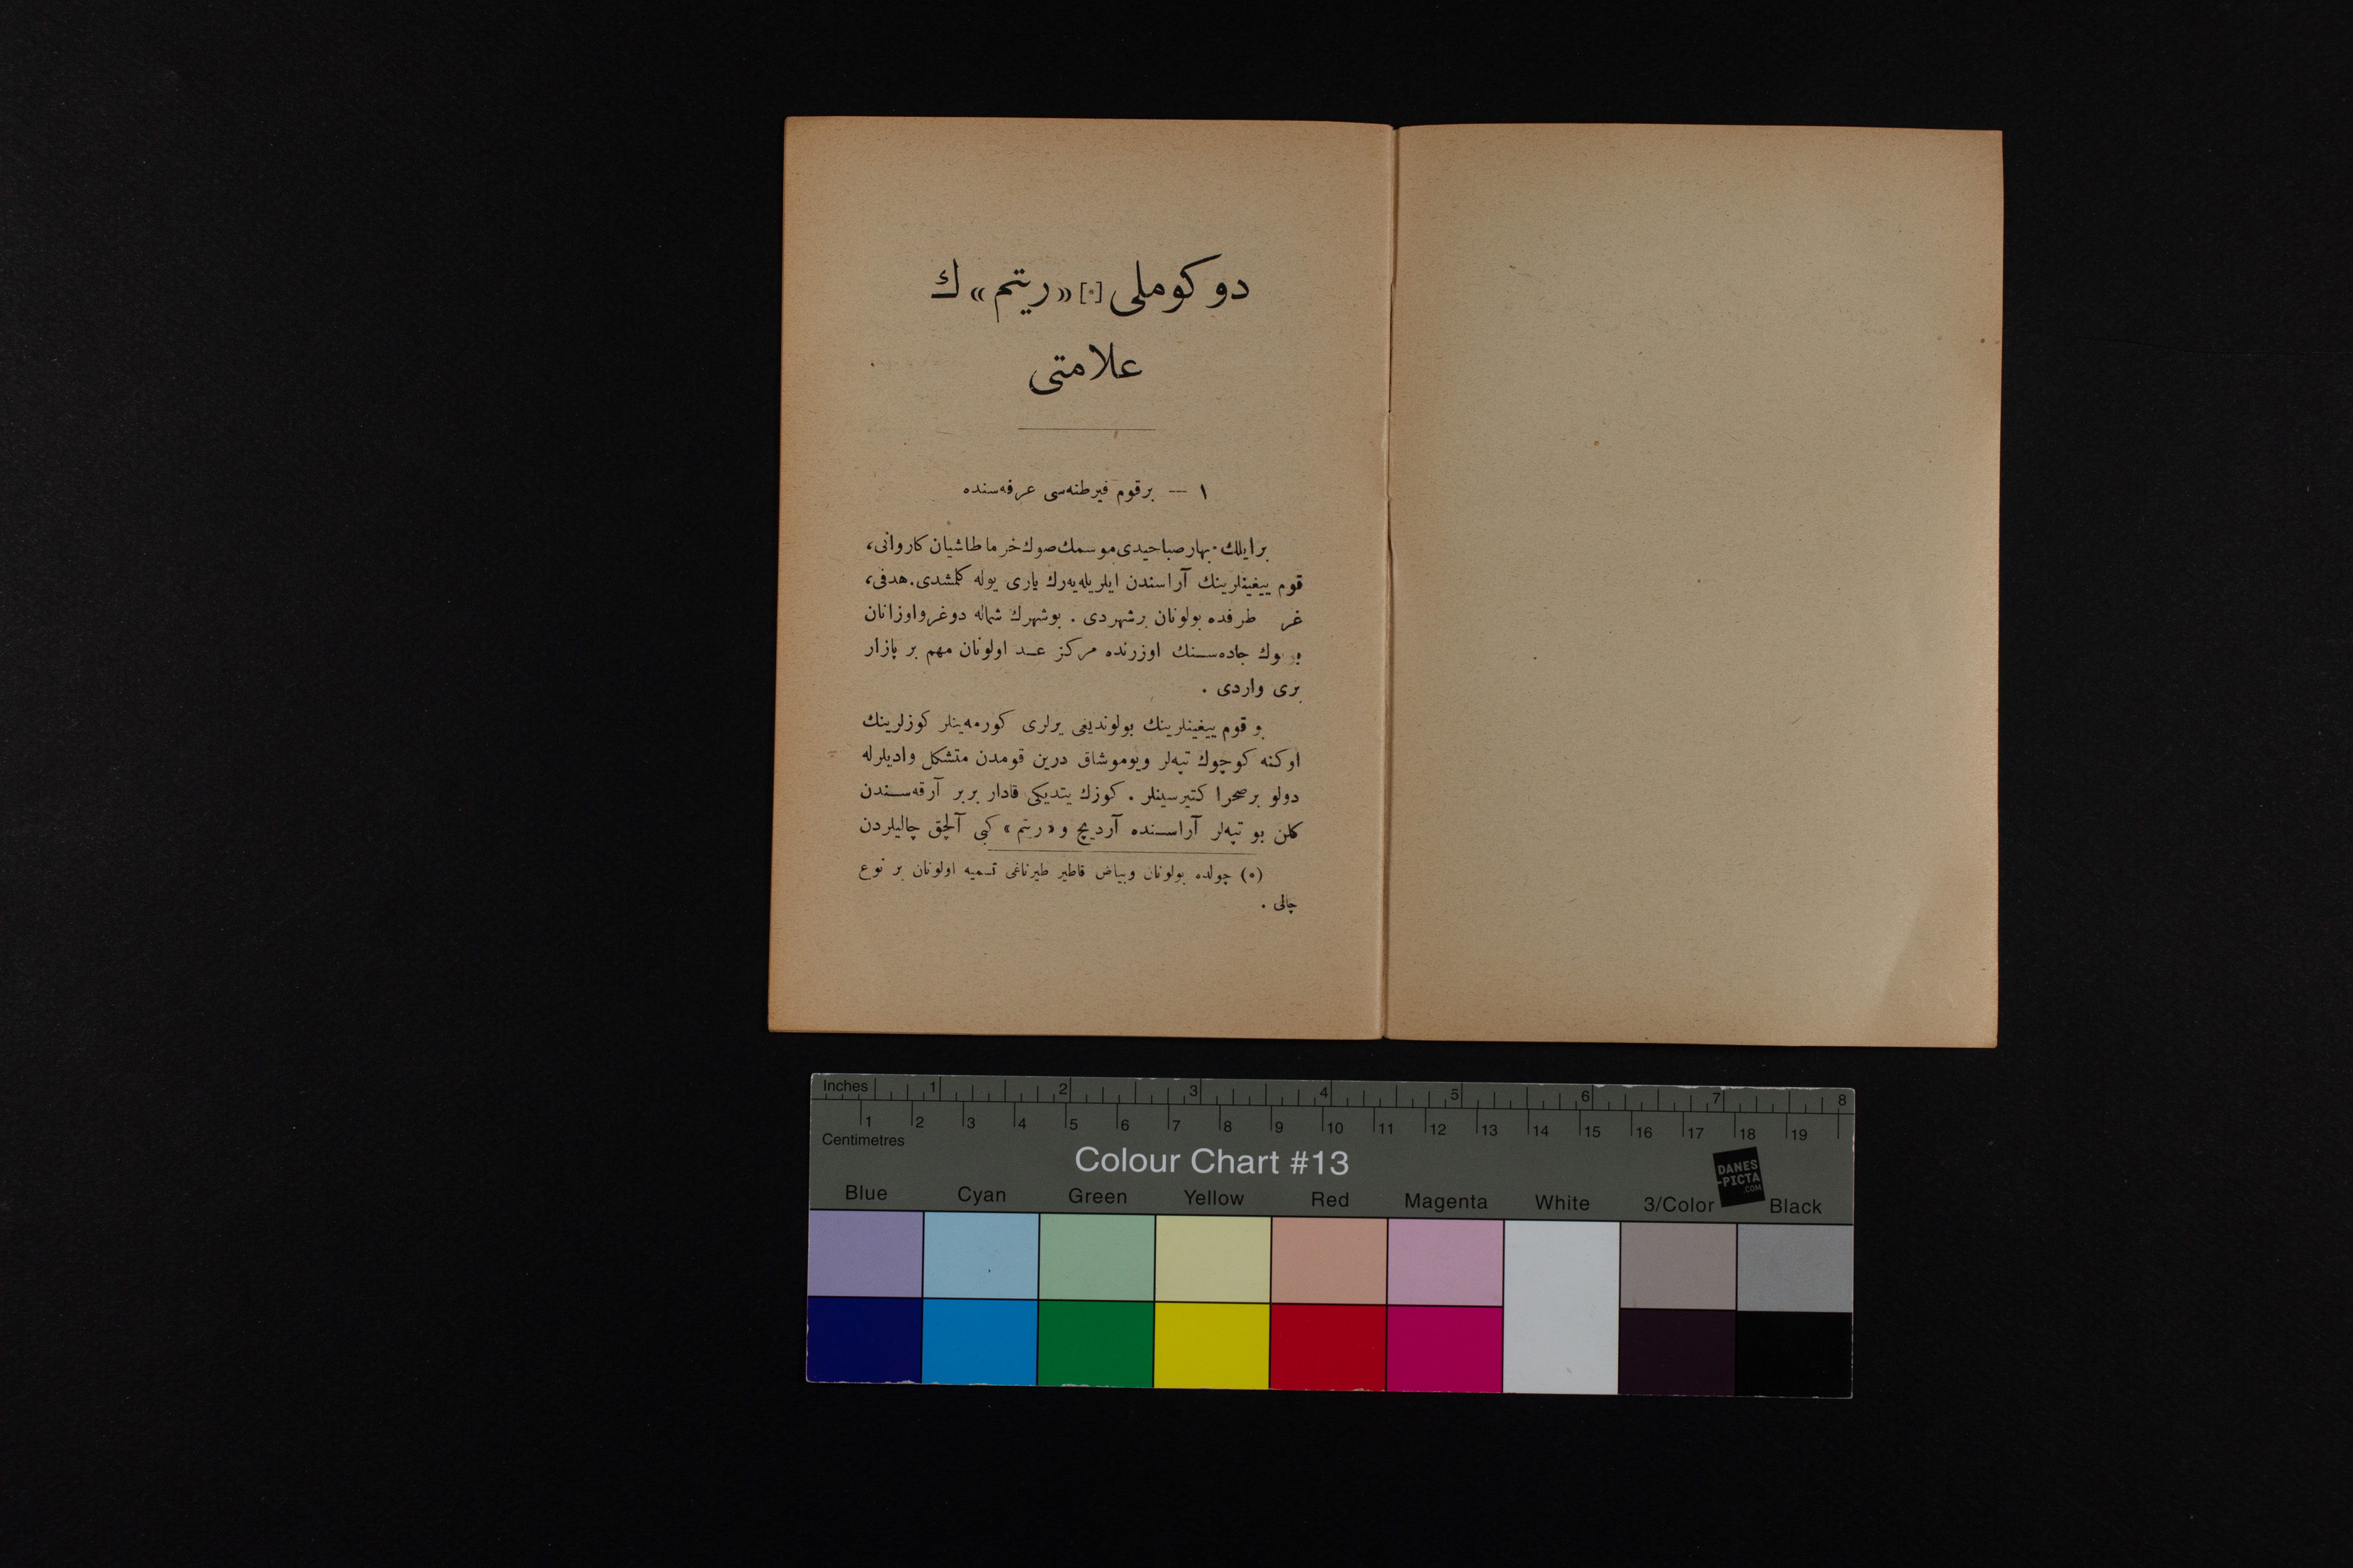 دوکوملی [٠] «ریتم» ك
علامتی
١ — برقوم فیرطنه‌سی عرفه‌سنده
برایلك بهار صباحیدی موسمك صوك خرما طاشیان کاروانی،
قوم ییغینلرینك آراسندن ایلریله‌یه‌رك یاری یوله کلمشدی. هدفی،
غر طرفده بولونان برشهردی . بوشهرك شماله دوغرواوزانان
جاده‌سنك اوزرنده مرکز عد اولونان مهم بر پازار
یری واردی .
و قوم ییغینلرینك بولوندیغی یرلری کورمه‌ینلر کوزلرینك
اوکنه کوچوك تپه‌لر ویوموشاق درین قومدن متشکل وادیلرله
دولو برصحرا کتیرسینلر . کوزك یتدیکی قادار بربر آرقه‌سندن
کلن بو تپه‌لر آراسنده آردیچ و «ریتم» کبی آلچق چالیلردن
(٠) چولده بولونان وبیاض قاطیر طیرناغی تسمیه اولونان بر نوع
چالی .
Inches 1 2 3 4 5 6 7 8
1 2 3 4 5 6 7 8 9 10 11 12 13 14 15 16 17 18 19
Centimetres
Colour Chart #13
DANES
-PICTA
.COM
Blue Cyan Green Yellow Red Magenta White 3/Color Black